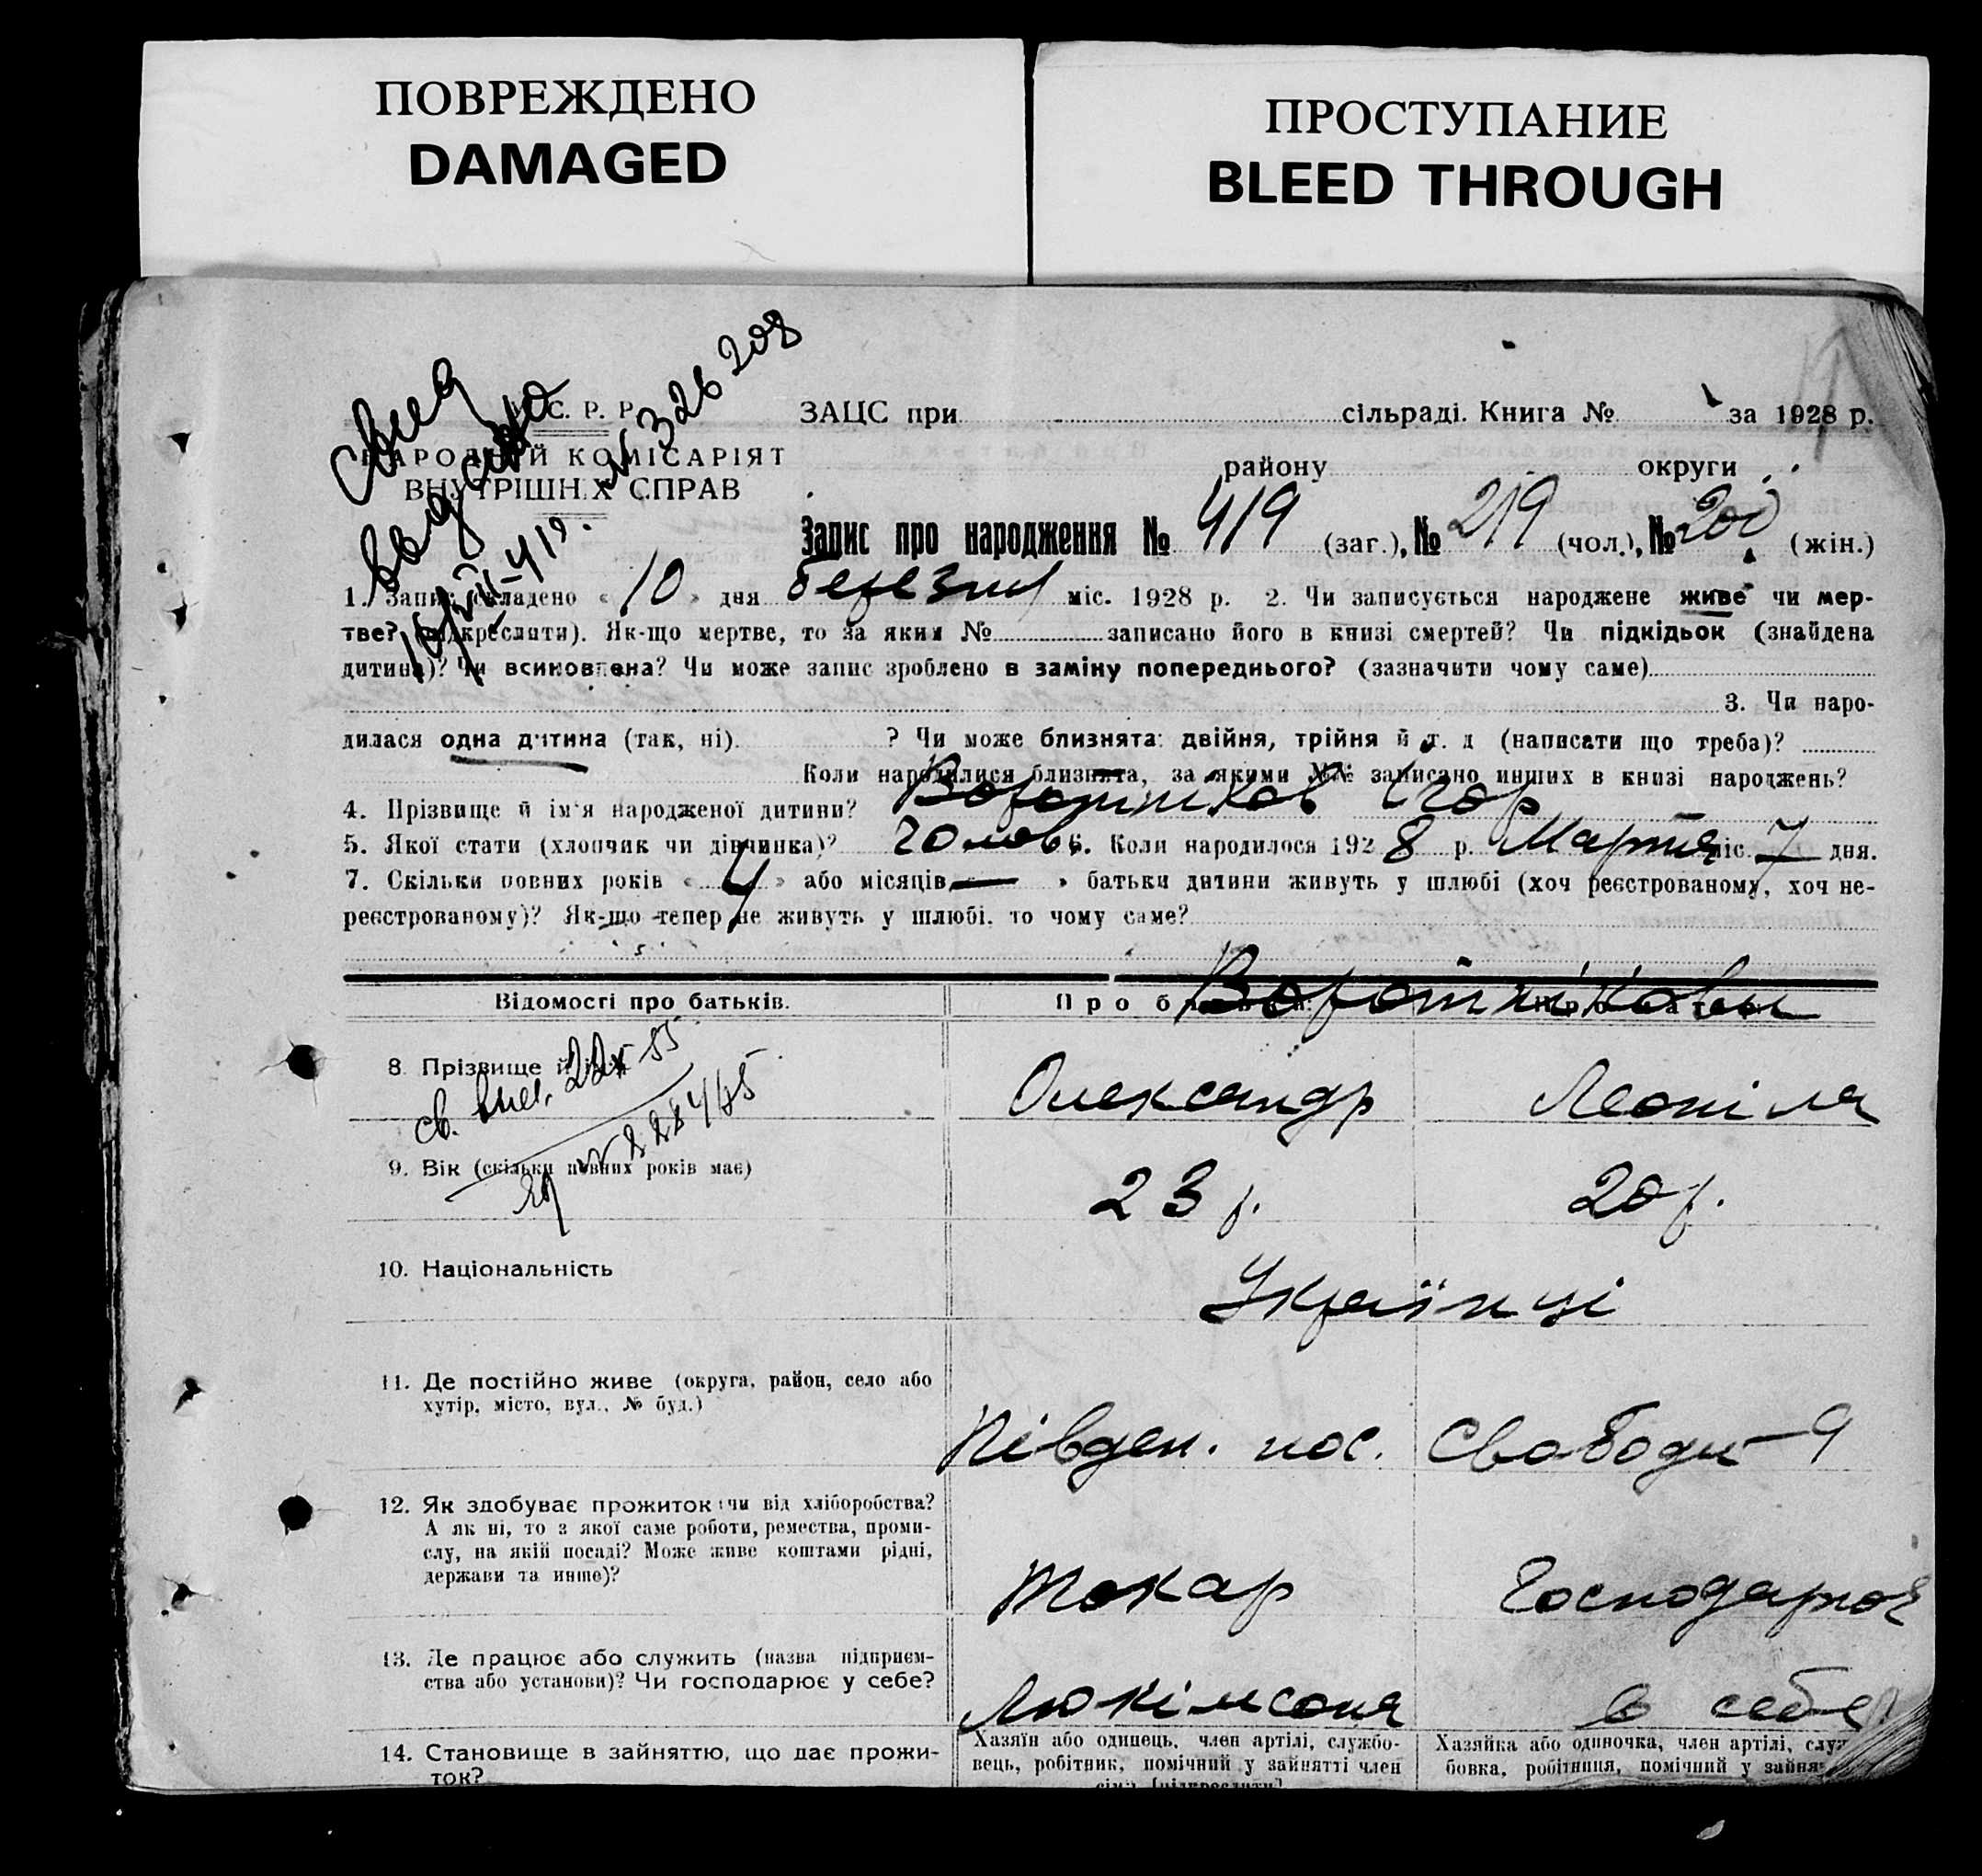 ПОВРЕЖДЕНО
DAMAGED
ПРОСТУПАНИЕ
BLEED THROUGH
С. Р. Р.
НАРОДНИЙ КОМІСАРІЯТ
ВНУТРІШНІХ СПРАВ
№ 326208
ЗАЦС при сільраді. Книга № за 1928 р.
району округи
Запис про народження № 419 (заг.), № 219 (чол.), № 200 (жін.)
1. Запис складено « 10 » дня березня міс. 1928 р. 2. Чи записується народжене живе чи мер-
тве? (підкреслити). Як-що мертве, то за яким № записано його в книзі смертей? Чи підкідьок (знайдена
дитина)? Чи всиновлена? Чи може запис зроблено в заміну попереднього? (зазначити чому саме)
3. Чи наро-
дилася одна дитина (так, ні). ? Чи може близнята: двійня, трійня й т. д (написати що треба)?
Коли народилися близнята, за якими №№ записано инших в книзі народжень?
4. Прізвище й ім'я народженої дитини? Воротніков Ігор
5. Якої стати (хлопчик чи дівчинка)? чолов 6. Коли народилося 1928 р. Марта міс. 7 дня.
7. Скільки повних років « 4 » або місяців — » батьки дитини живуть у шлюбі (хоч реєстрованому, хоч не-
реєстрованому)? Як-що тепер не живуть у шлюбі, то чому саме?
Воротнікови
Відомості про батьків.
8. Прізвище й Олександр Леоніла
9. Вік (скільки повних років має) 23 р. 20 р.
10. Національність Українці
11. Де постійно живе (округа, район, село або
хутір, місто, вул., № буд.)
Півден. пос. Свободи — 9
12. Як здобуває прожиток: чи від хліборобства?
А як ні, то з якої саме роботи, ремества, проми-
слу, на якій посаді? Може живе коштами рідні,
держави та инше)?
Токар Господарює
13. Де працює або служить (назва підприєм-
ства або установи)? Чи господарює у себе?
в себе
14. Становище в зайняттю, що дає прожи-
ток?
Хазяїн або одинець, член артілі, службо-
вець, робітник, помічний у зайнятті член
Хазяйка або одиночка, член артілі, служ
бовка, робітниця, помічний у зайня